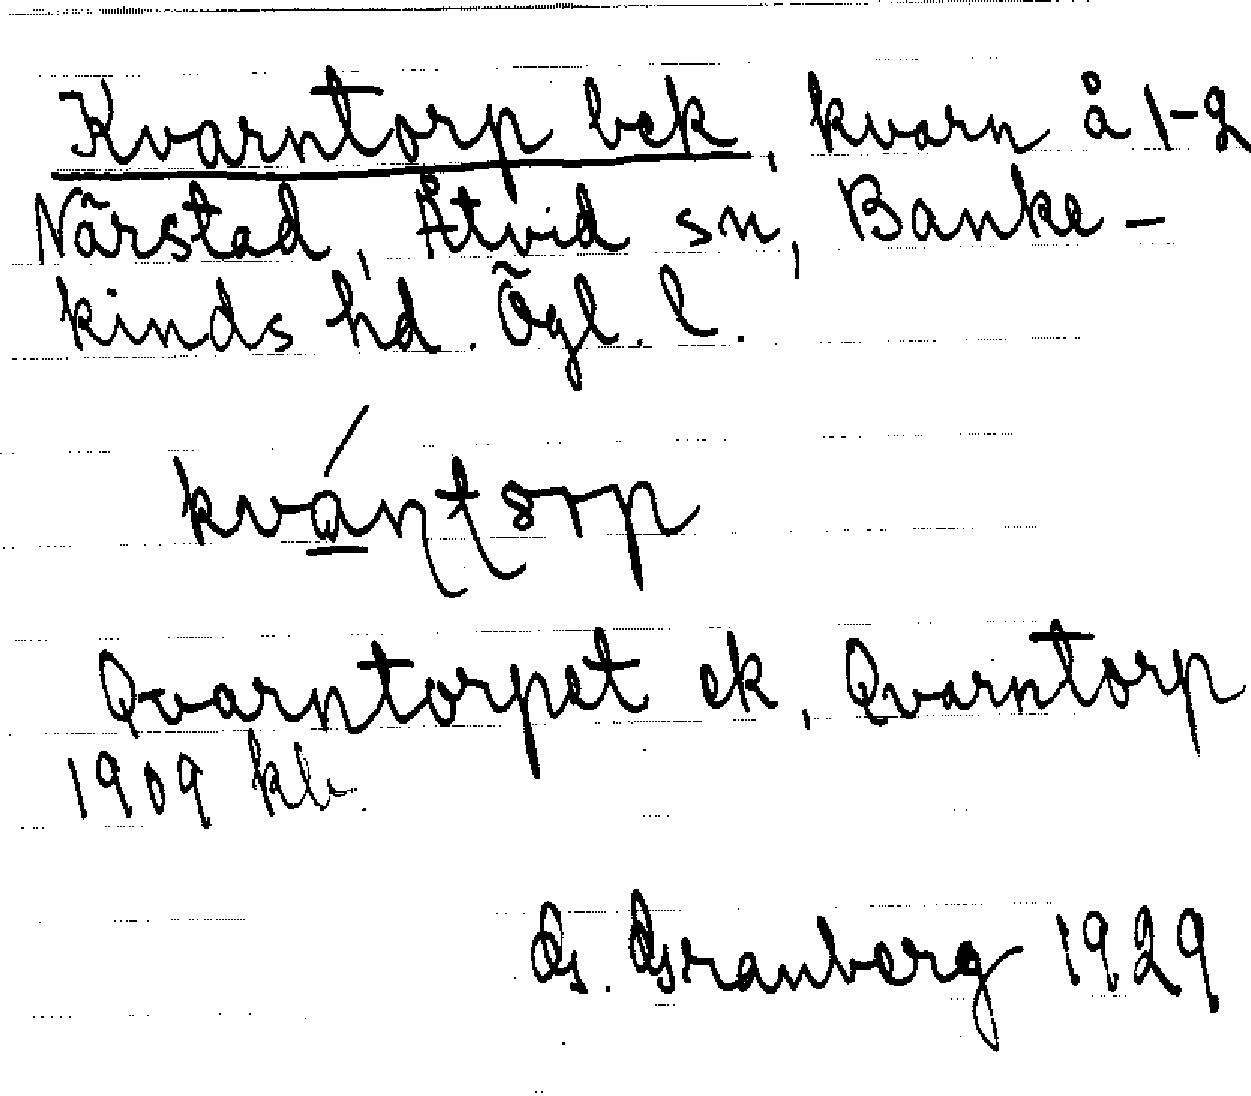 Kvarntorp bek, kvarn å 1-2
Närstad, Åtvid sn, Banke-
kinds hd. Ögl. l.
kvántorp
Qvarntorpet ek, Qvarntorp
1909 kb.
G. Granberg 1929